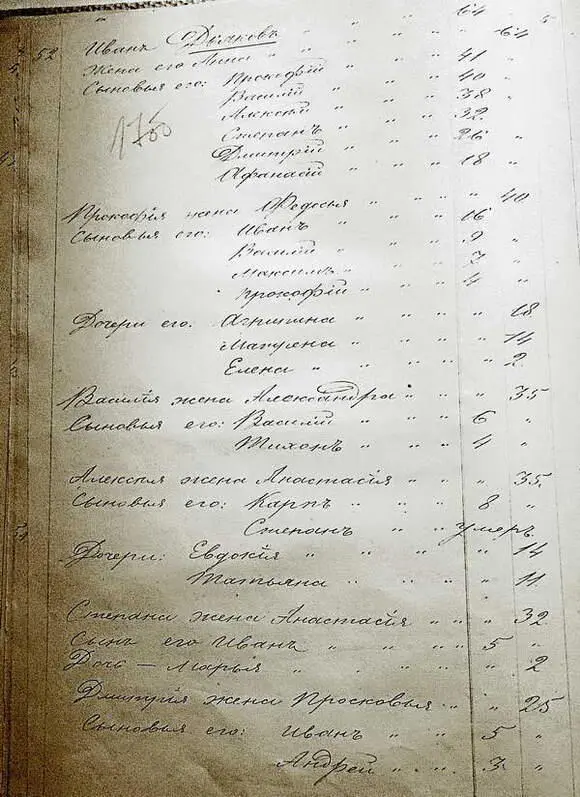 52 Иванъ Дьяковъ " " " 64 "
Жена его Анна " " " " 64
Сыновья его: Прокофій " " 41 "
Василій " " 40 "
Алексѣй " " 38 "
Степанъ " " 32 "
1755
Дмитрій " " 26 "
Афанасій " " 18 "
Прокофія жена Федосья " " " 40
Сыновья его: Иванъ " " 16 "
Василій " " 9 "
Максимъ " " 7 "
Прокофій " " 4 "
Дочери его: Агрипина " " " 18
Матрена " " " 14
Елена " " " " 2
Василія жена Александра " " " 35
Сыновья его: Василій " " 6 "
Тихонъ " " 4 "
Алексѣя жена Анастасія " " " 35
Сыновья его: Карпъ " " " 8 "
Степанъ " " умеръ
Дочери: Евдокія " " " " " 14
Татьяна " " " " 11
Степана жена Анастасія " " " " 32
Сынъ его Иванъ " " " 5 "
Дочь — Марья " " " " " 2
Дмитрія жена Просковья " " " 25
Сыновья его: Иванъ " " 5 "
Андрей " " " 3 "